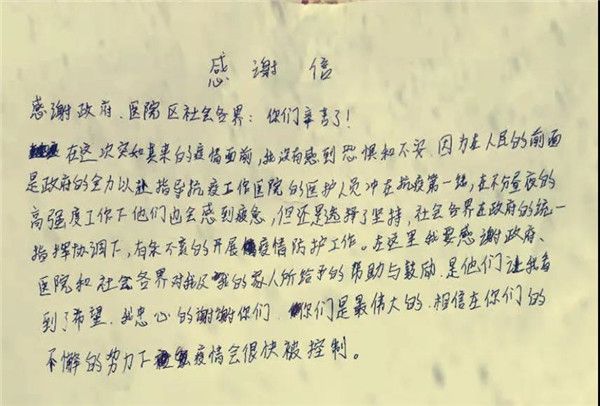 感谢信
感谢政府、医院区社会各界：你们辛苦了！
在这次突如其来的疫情面前，我没有感到恐惧和不安。因为在人民的前面
是政府的全力以赴指导抗疫工作医院的医护人员冲在抗疫第一线，在不分昼夜的
高强度工作下他们也会感到疲惫，但还是选择了坚持，社会各界在政府的统一
指挥协调下，有条不紊的开展疫情防护工作。在这里我要感谢政府、
医院和社会各界对我及我的家人所给予的帮助与鼓励。是他们让我看
到了希望。我忠心的谢谢你们 你们是最伟大的。相信在你们的
不懈的努力下疫情会很快被控制。